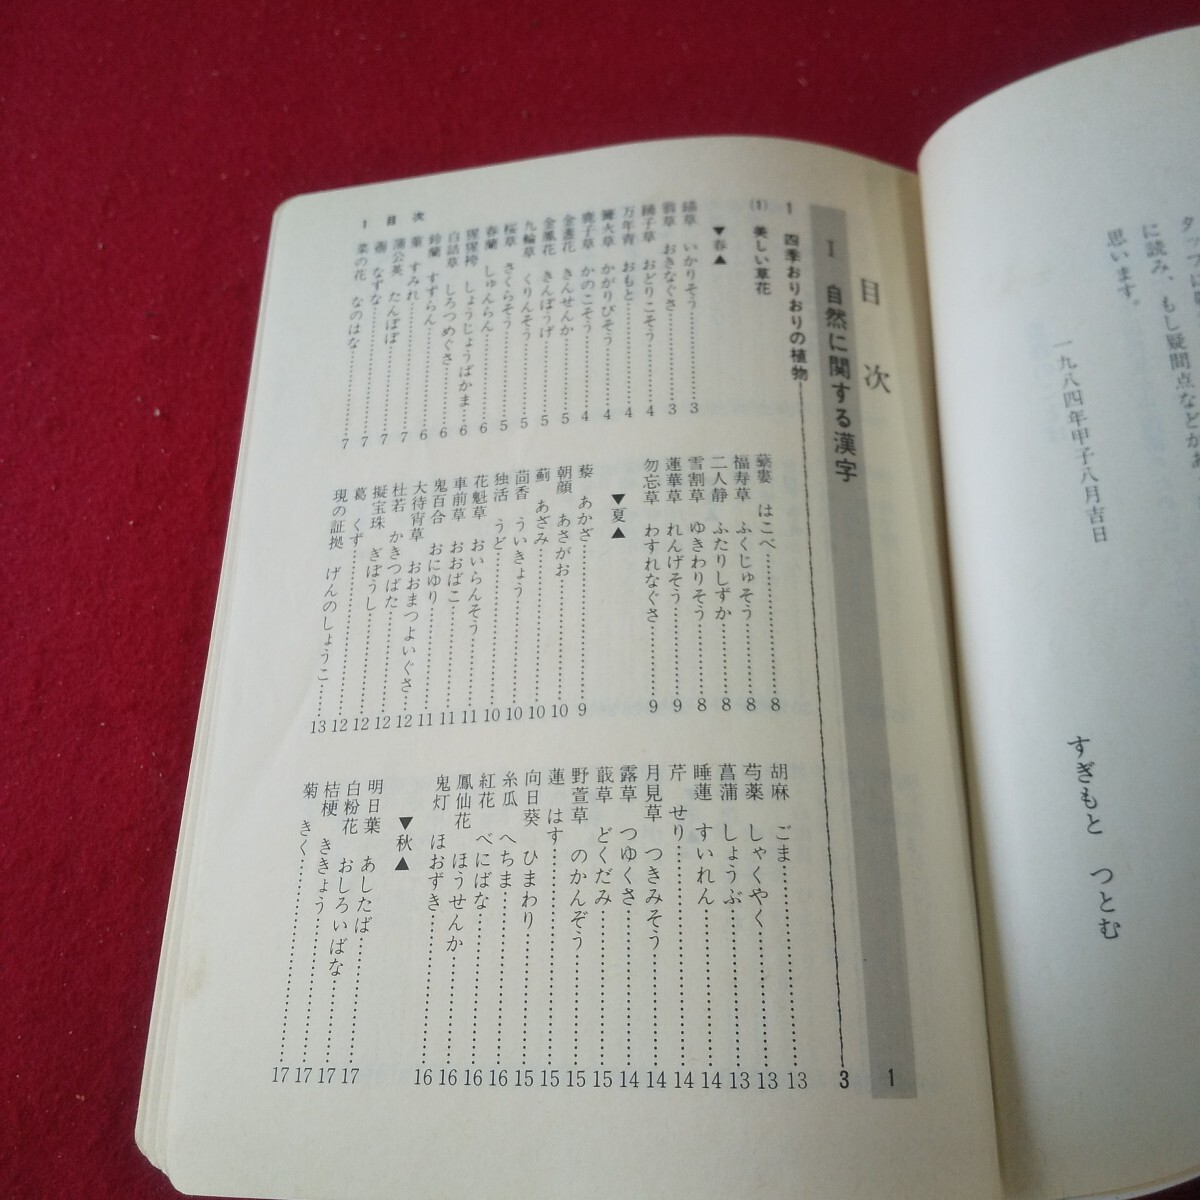 に読み、もし疑問点などがお
思います。
一九八四年甲子八月吉日
すぎもと つとむ
目 次
I 自然に関する漢字 1
1 四季おりおりの植物 3
(1) 美しい草花
▼春▲
錨草 いかりそう 3
翁草 おきなぐさ 3
踊子草 おどりこそう 4
万年青 おもと 4
篝火草 かがりびそう 4
鹿子草 かのこそう 4
金盞花 きんせんか 5
金鳳花 きんぽうげ 5
九輪草 くりんそう 5
桜草 さくらそう 5
春蘭 しゅんらん 6
猩猩袴 しょうじょうばかま 6
白詰草 しろつめぐさ 6
鈴蘭 すずらん 6
菫 すみれ 7
蒲公英 たんぽぽ 7
薺 なずな 7
菜の花 なのはな 7
蘩蔞 はこべ 8
福寿草 ふくじゅそう 8
二人静 ふたりしずか 8
雪割草 ゆきわりそう 8
蓮華草 れんげそう 9
勿忘草 わすれなぐさ 9
▼夏▲
藜 あかざ 9
朝顔 あさがお 10
薊 あざみ 10
茴香 ういきょう 10
独活 うど 10
花魁草 おいらんそう 11
車前草 おおばこ 11
鬼百合 おにゆり 11
大待宵草 おおまつよいぐさ 12
杜若 かきつばた 12
擬宝珠 ぎぼうし 12
葛 くず 12
現の証拠 げんのしょうこ 13
胡麻 ごま 13
芍薬 しゃくやく 13
菖蒲 しょうぶ 13
睡蓮 すいれん 14
芹 せり 14
月見草 つきみそう 14
露草 つゆくさ 14
蕺草 どくだみ 15
野萱草 のかんぞう 15
蓮 はす 15
向日葵 ひまわり 15
糸瓜 へちま 16
紅花 べにばな 16
鳳仙花 ほうせんか 16
鬼灯 ほおずき 16
▼秋▲
明日葉 あしたば 17
白粉花 おしろいばな 17
桔梗 ききょう 17
菊 きく 17
1 目 次